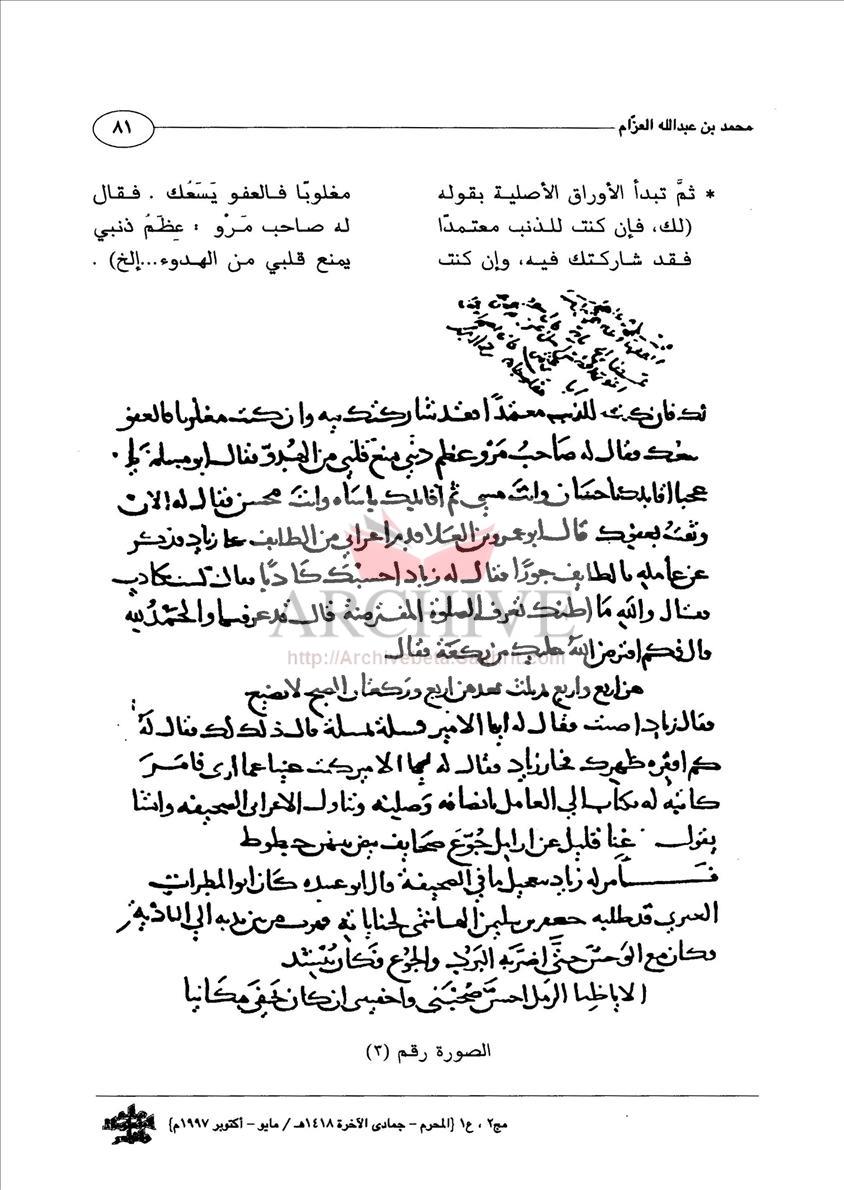 محمد بن عبدالله العزّام
٨١
* ثمَّ تبدأ الأوراق الأصلية بقوله
(لك، فإن كنت للذنب معتمدًا
فقد شاركتك فيه، وإن كنت
مغلوبًا فالعفو يَسَعُك . فقال
له صاحب مَرْو : عِظَمُ ذنبي
يمنع قلبي من الهدوء...إلخ) .
لك فان كنت للذنب معتمدًا فقد شاركتك فيه وان كنت مغلوبا فالعفو
يسعك فقال له صَاحبُ مَرْو عظم ذنبي يمنع قلبي من الهدوّ فقال ابو مسلم
عجبا اقابلك باحسان وانت مسي ثم اقابلك باساه وانت محسن فقال له الان
وثقتُ بعفوك قال ابو عمرو بن العلا قدم اعرابي من الطايف على زياد فذكر
عن عامله بالطايف جورًا فقال له زياد احسبك كاذبًا قال لست بكاذب
فقال والله مَا اظنك تعرف الصلوة المفترضة قال قد عرفتها والحَمْدُ لله
قال فكم افترض اللهُ عليك من ركعة فقال
هن اربع واربع
فقال زياد اصبت فقال له ايها الامير مسلة بمسلة قال ذلك لك فقال له
كم فقره ظهرك فحار زياد فقال له ايها الامير كنت غنيا عما ارى فامَرَ
كاتبَه له بكتاب الى العامل بانصافه وَصلته وتناول الاعرابي الصحيفه وانشا
يقول
صحايف بيض بينهن خطوط
فامر له زياد بتعجيل ما في الصحيفة قال ابو عبيده كان ابو المطراب
العنبري قد طلبه جعفر بن سليمن الهاشمي لجنايا ته فهرب من بين يديه الي البَادية
وكان مع الوَحش حتَّى اضر به البَرْد والجُوْع فكان يُنشد
الا ياظبا الرَمل احسنَّ صُحْبَتي واخفينني ان كان يَخفَى مكانيا
الصورة رقم (٣)
مج٢ ، ع١ {المحرم - جمادى الآخرة ١٤١٨هـ / مايو - أكتوبر ١٩٩٧م}
ARCHIVE
http://Archivebeta.Sakhrit.com